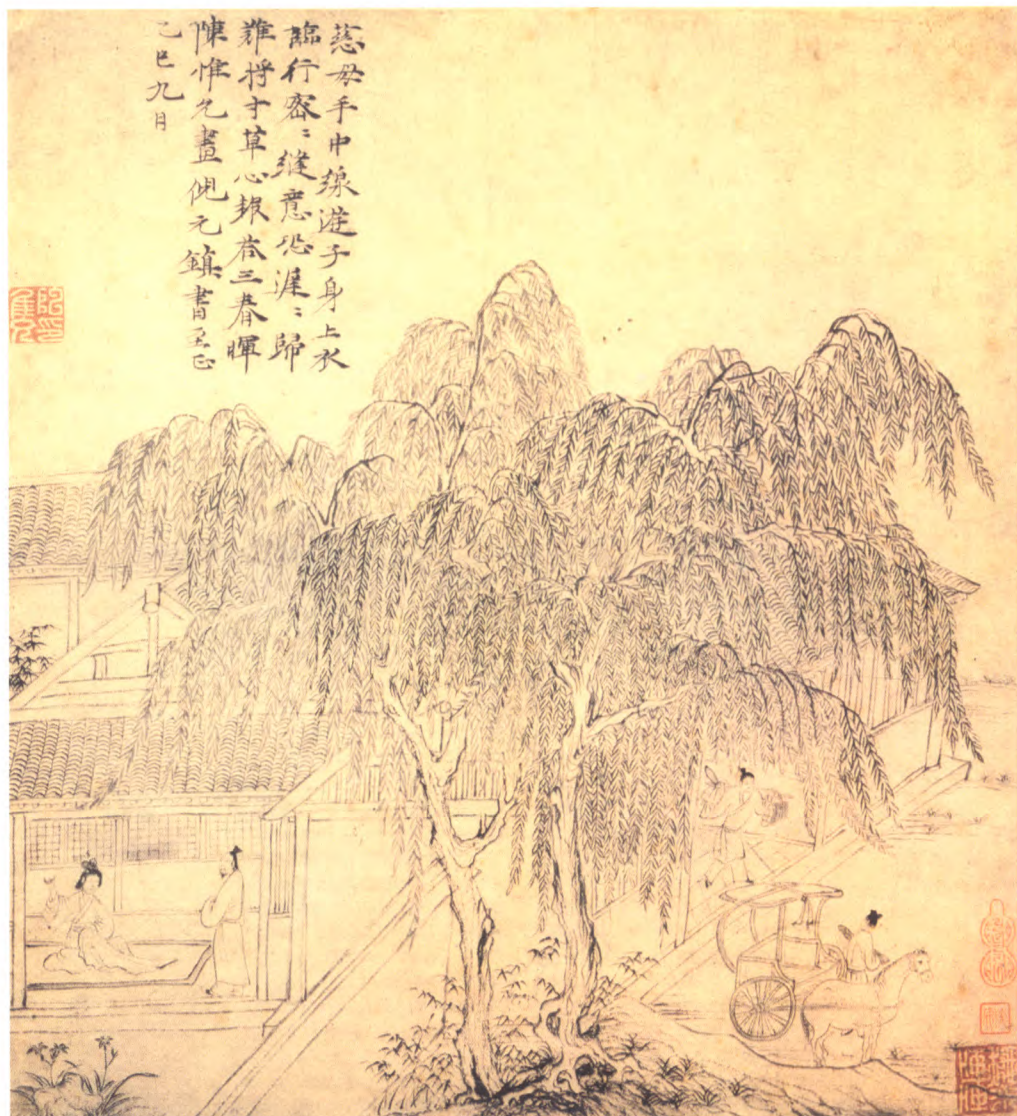 慈母手中線遊子身上衣
臨行密〻縫意恐遲〻歸
難將寸草心報荅三春暉
陳惟允畫倪元鎮書至正
乙巳九日